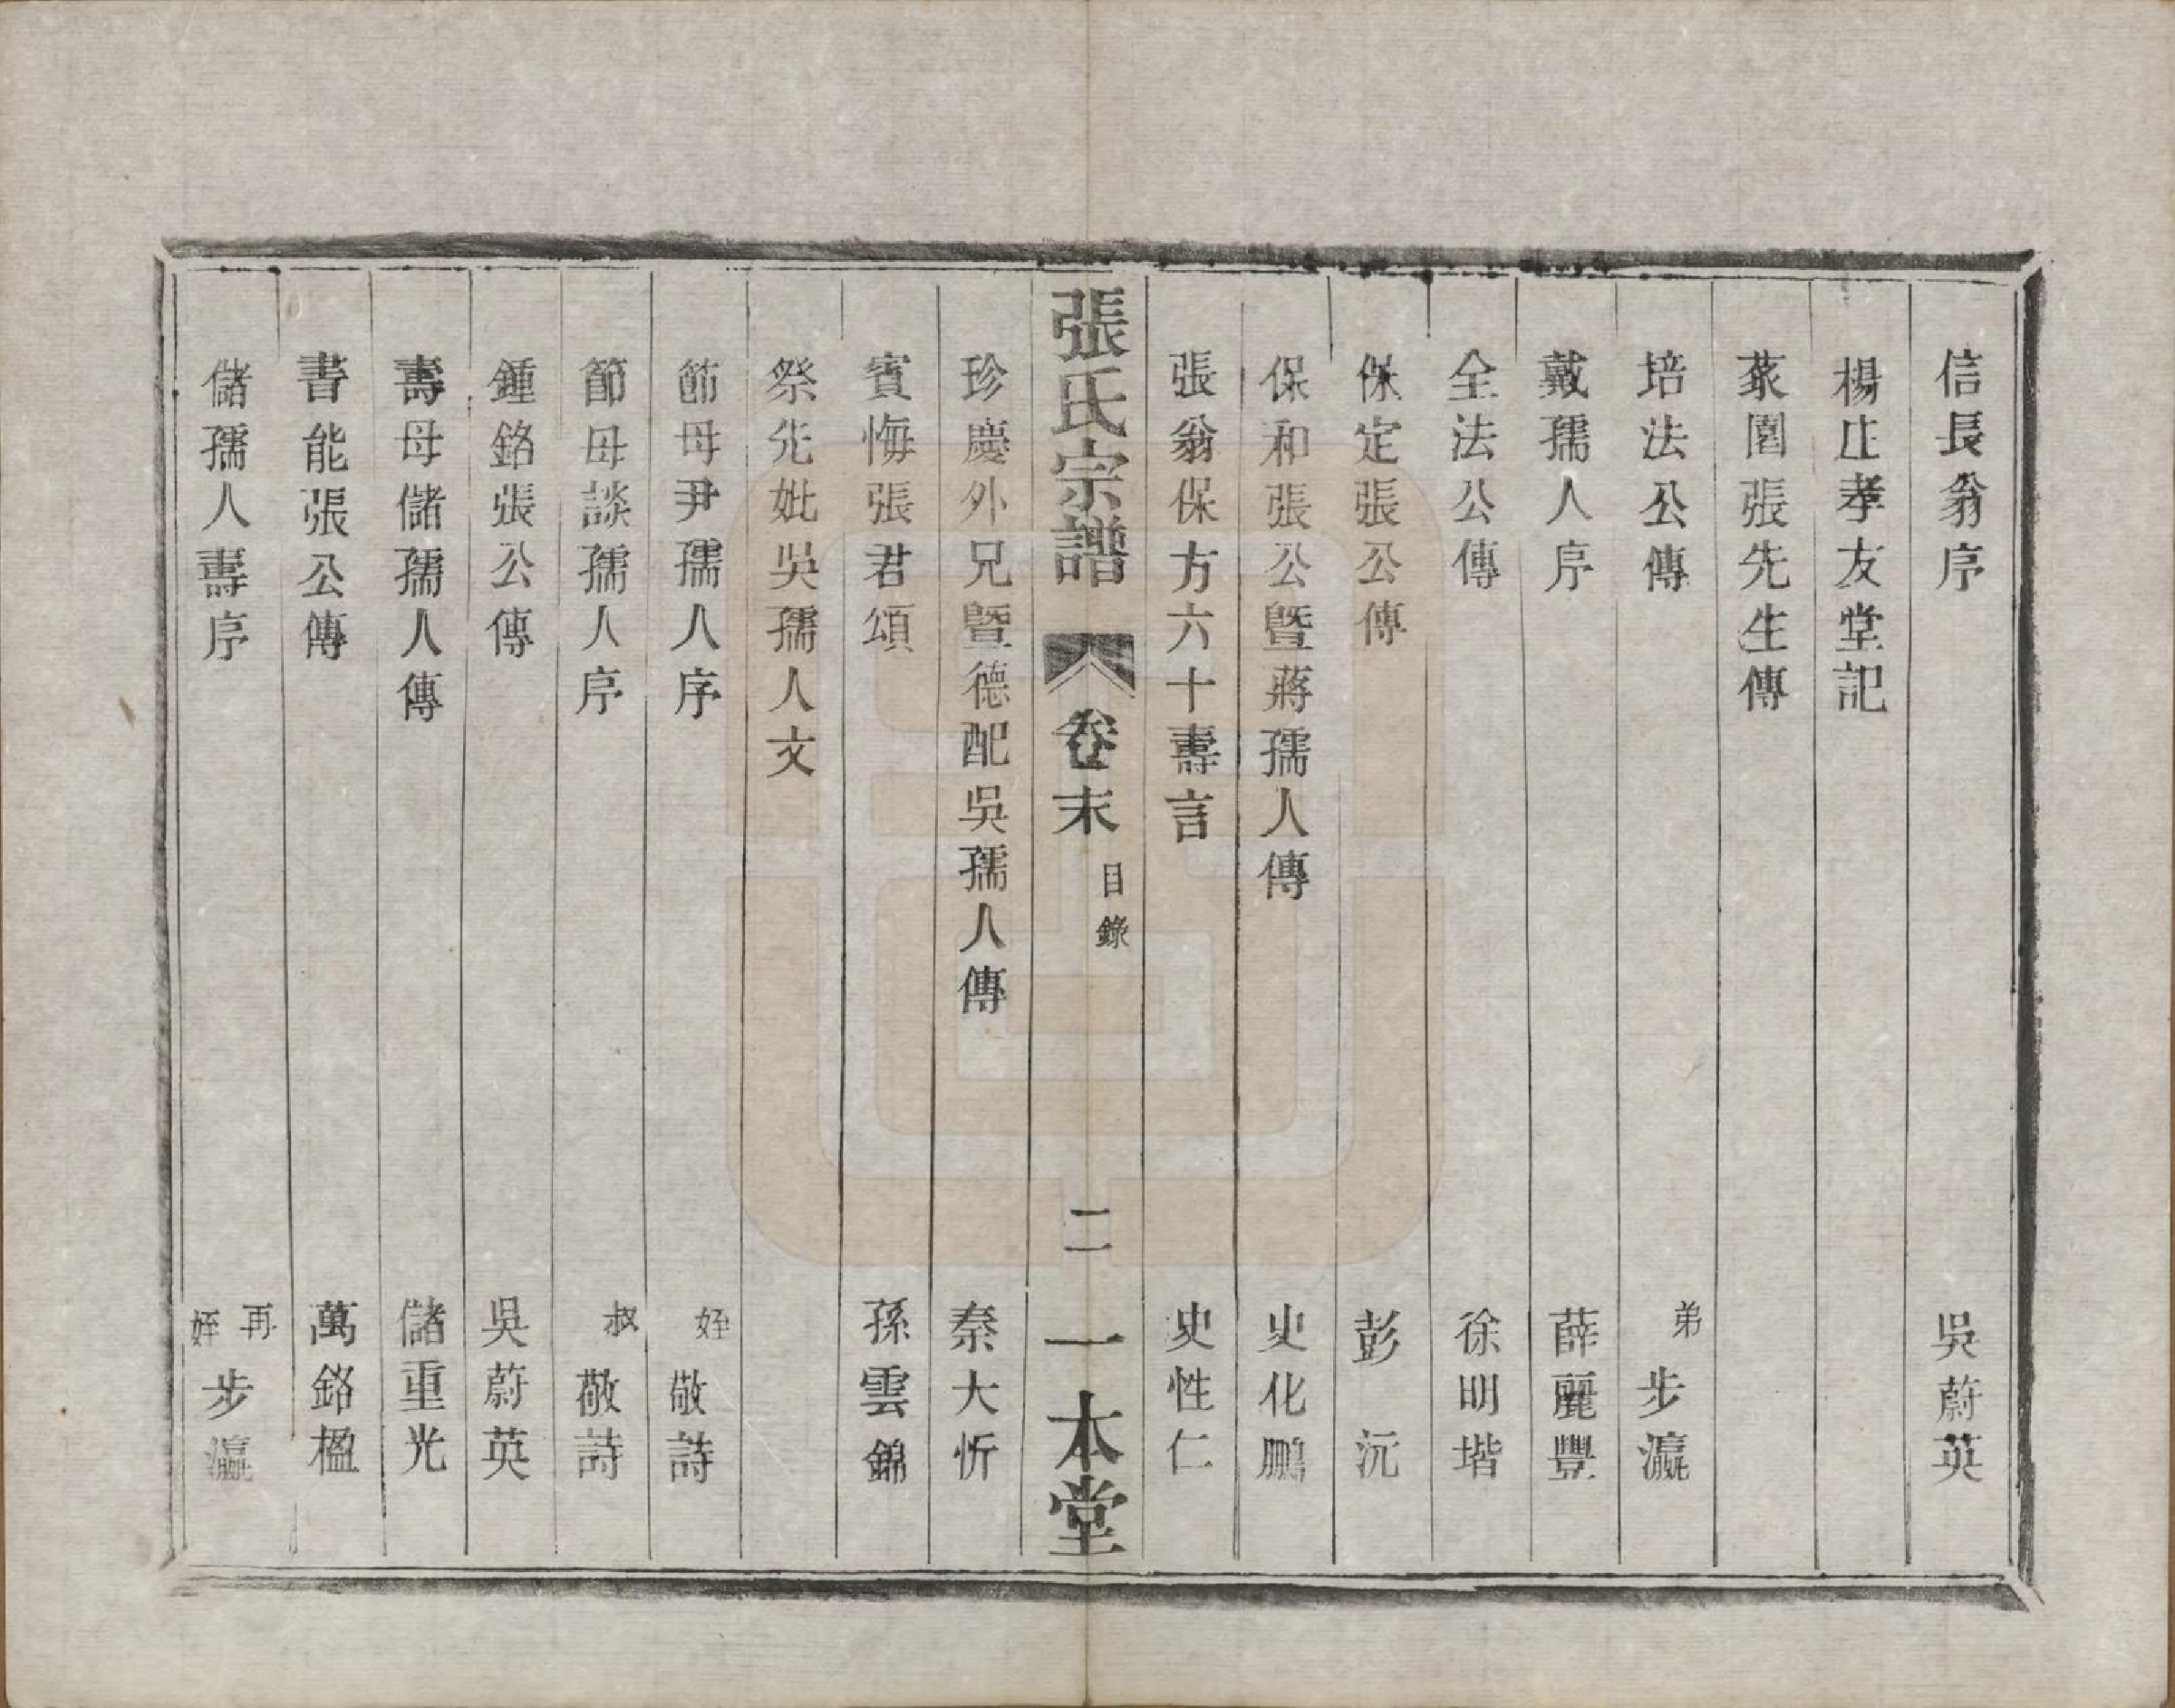 信長翁序 吳蔚英
楊庄孝友堂記
蒙園張先生傳
培法公傳 弟步瀛
戴孺人序 薛麗豐
全法公傳 徐明堦
保定張公傳 彭沅
保和張公暨蔣孺人傳 史化鵬
張翁保方六十壽言 史性仁
張氏宗譜 卷末 目錄 二 一本堂
珍慶外兄暨德配吳孺人傳 秦大忻
賓悔張君頌 孫雲錦
祭先妣吳孺人文
節母尹孺人序 姪敬詩
節母談孺人序 叔敬詩
鍾銘張公傳 吳蔚英
壽母儲孺人傳 儲重光
書能張公傳 萬銘楹
儲孺人壽序 再姪步瀛